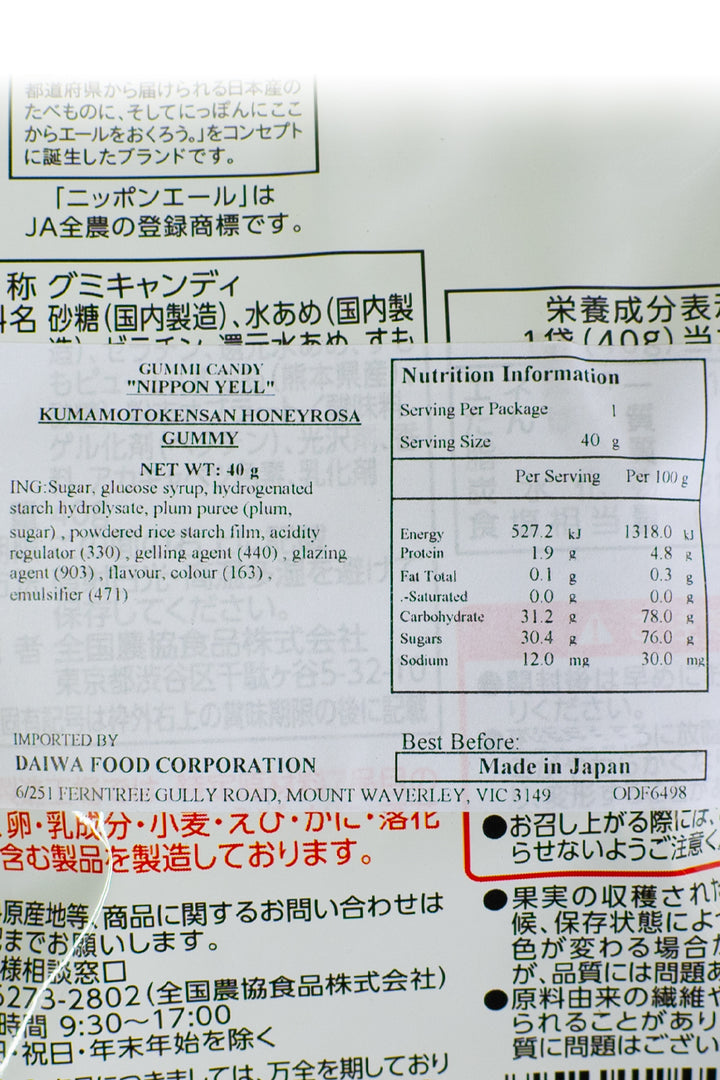 都道府県から届けられる日本産の
たべものに、そしてにっぽんにここ
からエールをおくろう。」をコンセプト
に誕生したブランドです。
「ニッポンエール」は
JA全農の登録商標です。
称 グミキャンディ
名 砂糖(国内製造)、水あめ(国内製
造)、ゼラチン、還元水あめ、すも
栄養成分表示
1袋(40g)当
GUMMI CANDY
"NIPPON YELL"
KUMAMOTOKENSAN HONEYROSA
GUMMY
NET WT: 40 g
ING:Sugar, glucose syrup, hydrogenated
starch hydrolysate, plum puree (plum,
sugar) , powdered rice starch film, acidity
regulator (330) , gelling agent (440) , glazing
agent (903) , flavour, colour (163) ,
emulsifier (471)
Nutrition Information
Serving Per Package 1
Serving Size 40 g
Per Serving Per 100 g
Energy 527.2 kJ 1318.0 kJ
Protein 1.9 g 4.8 g
Fat Total 0.1 g 0.3 g
.-Saturated 0.0 g 0.0 g
Carbohydrate 31.2 g 78.0 g
Sugars 30.4 g 76.0 g
Sodium 12.0 mg 30.0 mg
保存してください。
者 全国農協食品株式会社
東京都渋谷区千駄ケ谷5-32-10
固有記号は枠外右上の賞味期限の後に記載
IMPORTED BY
DAIWA FOOD CORPORATION
6/251 FERNTREE GULLY ROAD, MOUNT WAVERLEY, VIC 3149 ODF6498
Best Before:
Made in Japan
卵・乳成分・小麦・えび・かに・落花
含む製品を製造しております。
原産地等、商品に関するお問い合わせは
までお願いします。
様相談窓口
6273-2802(全国農協食品株式会社)
時間 9:30〜17:00
・祝日・年末年始を除く
につきましては、万全を期しており
●お召し上がる際には、
らせないようご注意く
●果実の収穫された
候、保存状態によ
色が変わる場合が
が、品質には問題あ
●原料由来の繊維や
られることがあり
質に問題はござい